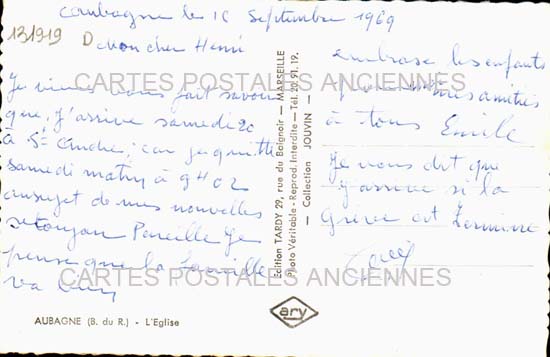 Aubagne le 16 Septembre 1969
131919 D
Mon cher Henri
Je viens vous fait savoir
que, j'arrive samedi 20
à St André; car je quitte
samedi matin à 9H02
au sujet de mes nouvelles
se toujours Pareille Je
pense que la famille
va bien
embrase les enfants
mes amitiés
à tous Emile
Je vous dit que
j'arrive si la
Grève est Terminé
CARTES POSTALES ANCIENNES
CARTES POSTALES ANCIENNES
Edition TARDY 29, rue du Baignoir — MARSEILLE
Photo Véritable - Reprod. Interdite — Tél. 20.91.19.
— Collection JOUVIN —
ary
AUBAGNE (B. du R.) - L'Eglise